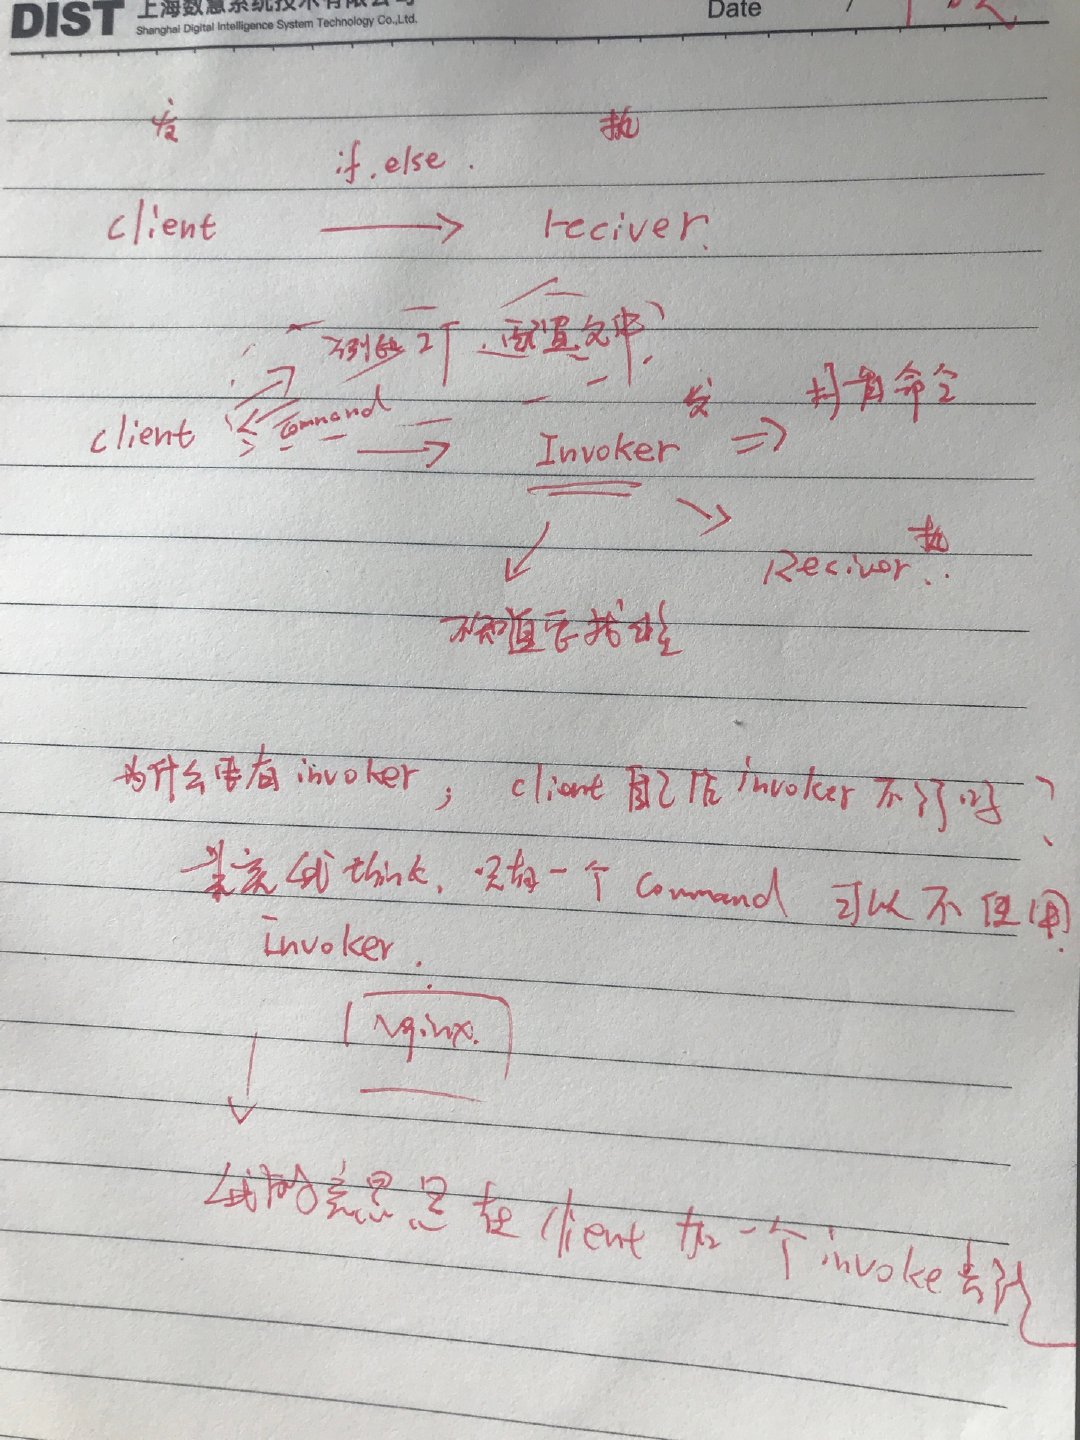 DIST 上海数慧系统技术有限公司
Shanghai Digital Intelligence System Technology Co.,Ltd.
Date /
执
if. else.
client reciver.
配置文件
Command
client Invoker 发 所有命令
执
Reciver..
不知道去找谁
为什么要有 invoker, client 自己作 invoker 不行吗?
think. 只有一个 Command 可以不使用
invoker.
Nginx.
的意思是在 client 加一个 invoke 去